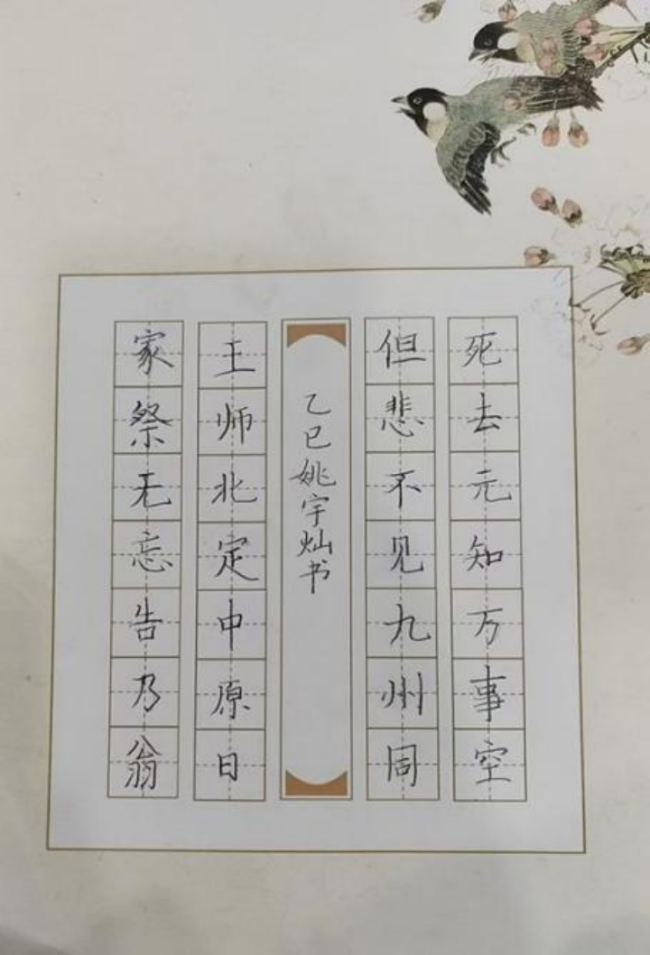 死去元知万事空
但悲不见九州周
乙巳姚宇灿书
王师北定中原日
家祭无忘告乃翁